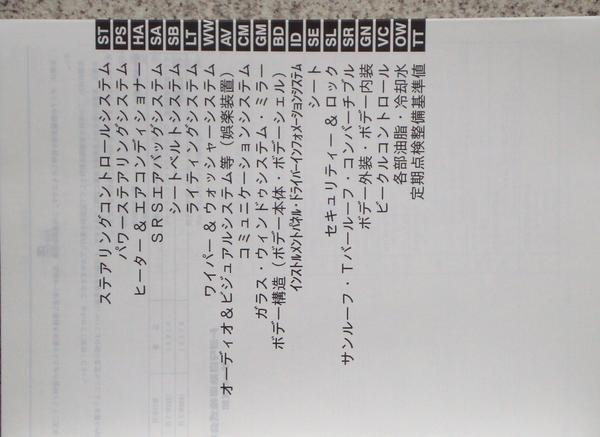 ST ステアリングコントロールシステム
PS パワーステアリングシステム
HA ヒーター & エアコンディショナー
SA SRSエアバッグシステム
SB シートベルトシステム
LT ライティングシステム
WW ワイパー & ウォッシャーシステム
AV オーディオ&ビジュアルシステム等(娯楽装置)
CM コミュニケーションシステム
GM ガラス・ウィンドゥシステム・ミラー
BD ボデー構造(ボデー本体・ボデーシェル)
ID インストルメントパネル・ドライバーインフォメーションシステム
SE シート
SL セキュリティー & ロック
SR サンルーフ・Tバールーフ・コンバーチブル
GN ボデー外装・ボデー内装
VC ビークルコントロール
OW 各部油脂・冷却水
TT 定期点検整備基準値